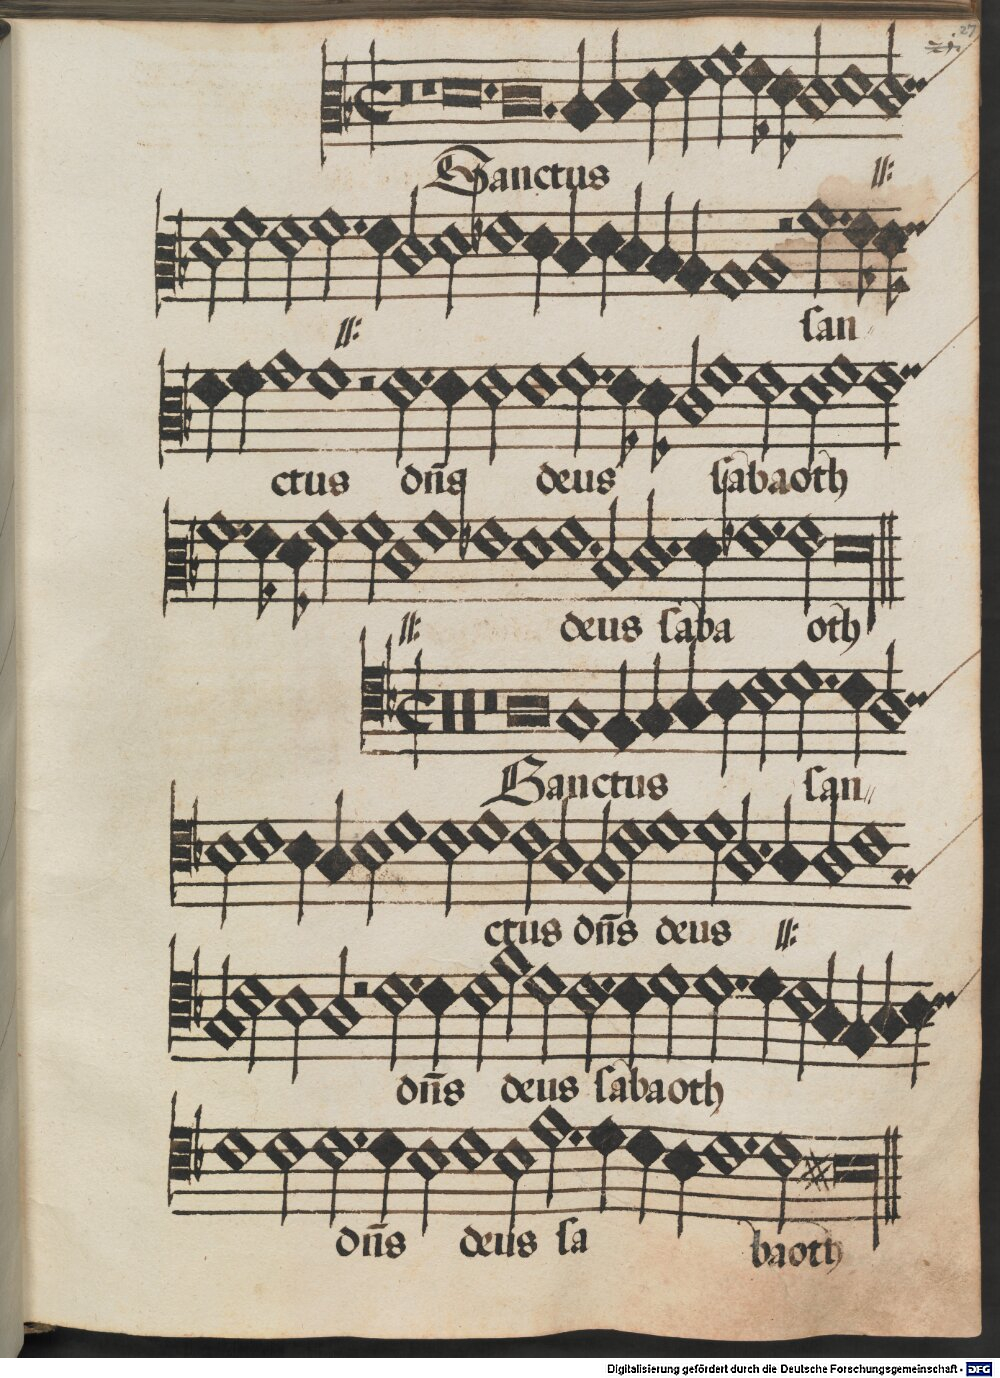 27
Sanctus :||:
:||: san
ctus dn̄s deus sabaoth
:||: deus saba oth
Sanctus san
ctus dn̄s deus :||:
dn̄s deus sabaoth
dn̄s deus sa baoth
Digitalisierung gefördert durch die Deutsche Forschungsgemeinschaft - DFG